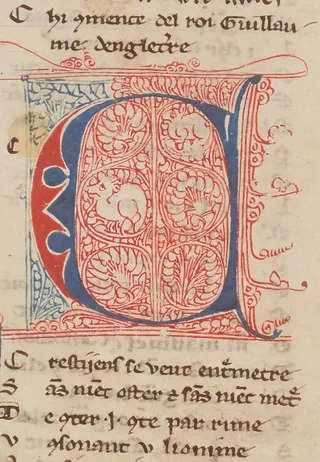 C hi ꝯmence del roi Guillau
me dengletˀre
c
C restijens se veut entˀmetre
S ãs niẽt oster ⁊ sãs niẽt metˀ
D e ꝯter .i. ꝯte par rime
V ꝯsonant v lionime